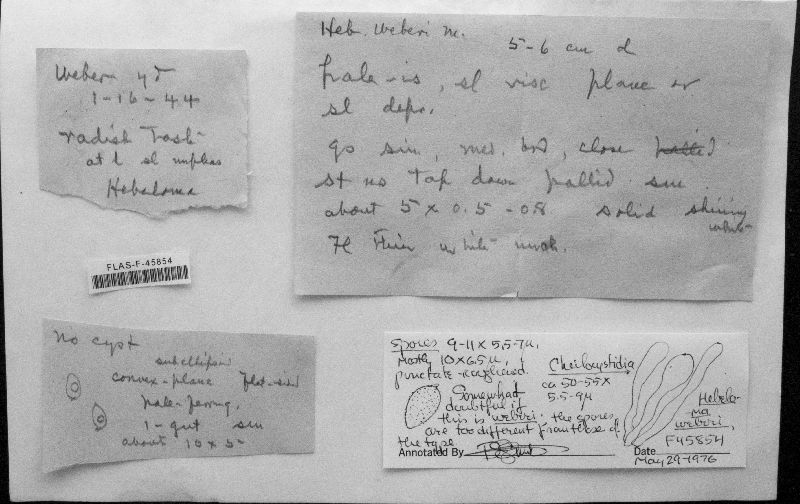 Weber yd
1-16-44
radish Task
at l sl unpleas
Hebeloma
Heb. weberi M.
5-6 cm d
pale-is, sl visc plane or
sl depr.
go sin, med. brd, close pallid
st no tap down pallid sm
about 5 x 0.5-0.8 solid shining
white
Fl thin white unch.
FLAS-F-45854
No cyst
subellipsin
convex-plane flat-sid
pale-ferrug.
1-gut sm
about 10 x 5
Spores 9-11 x 5.5-7μ,
mostly 10 x 6.5μ,
punctate-roughened.
Cheilocystidia
ca 50-55 x
5.5-9μ
Somewhat
doubtful if
this is weberi; the spores
are too different from those of
the type
Hebelo-
ma
weberi,
F45854
Annotated By
Date
May 29-1976